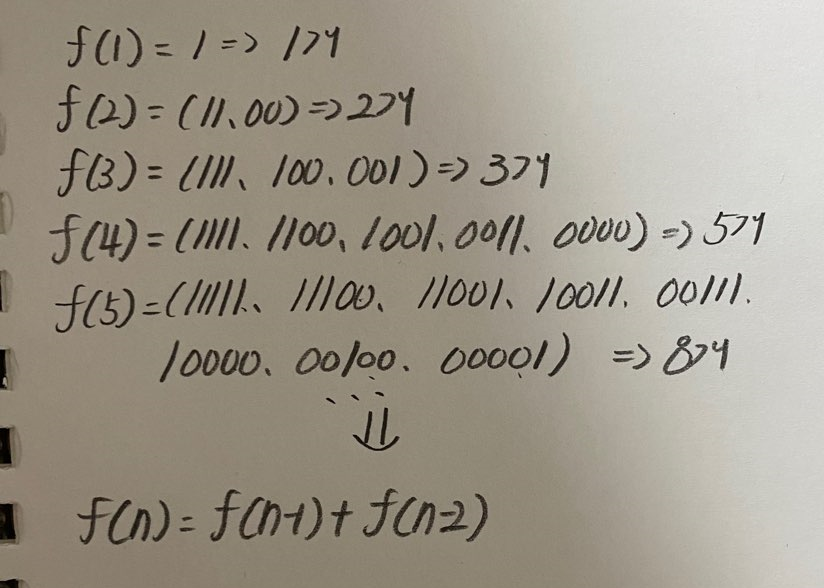 f(1) = 1 => 1개
f(2) = (11、00) => 2개
f(3) = (111、100、001) => 3개
f(4) = (1111、1100、1001、0011、0000) => 5개
f(5) = (11111、11100、11001、10011、00111、
10000、00100、00001) => 8개
...
⇓
f(n) = f(n-1) + f(n-2)